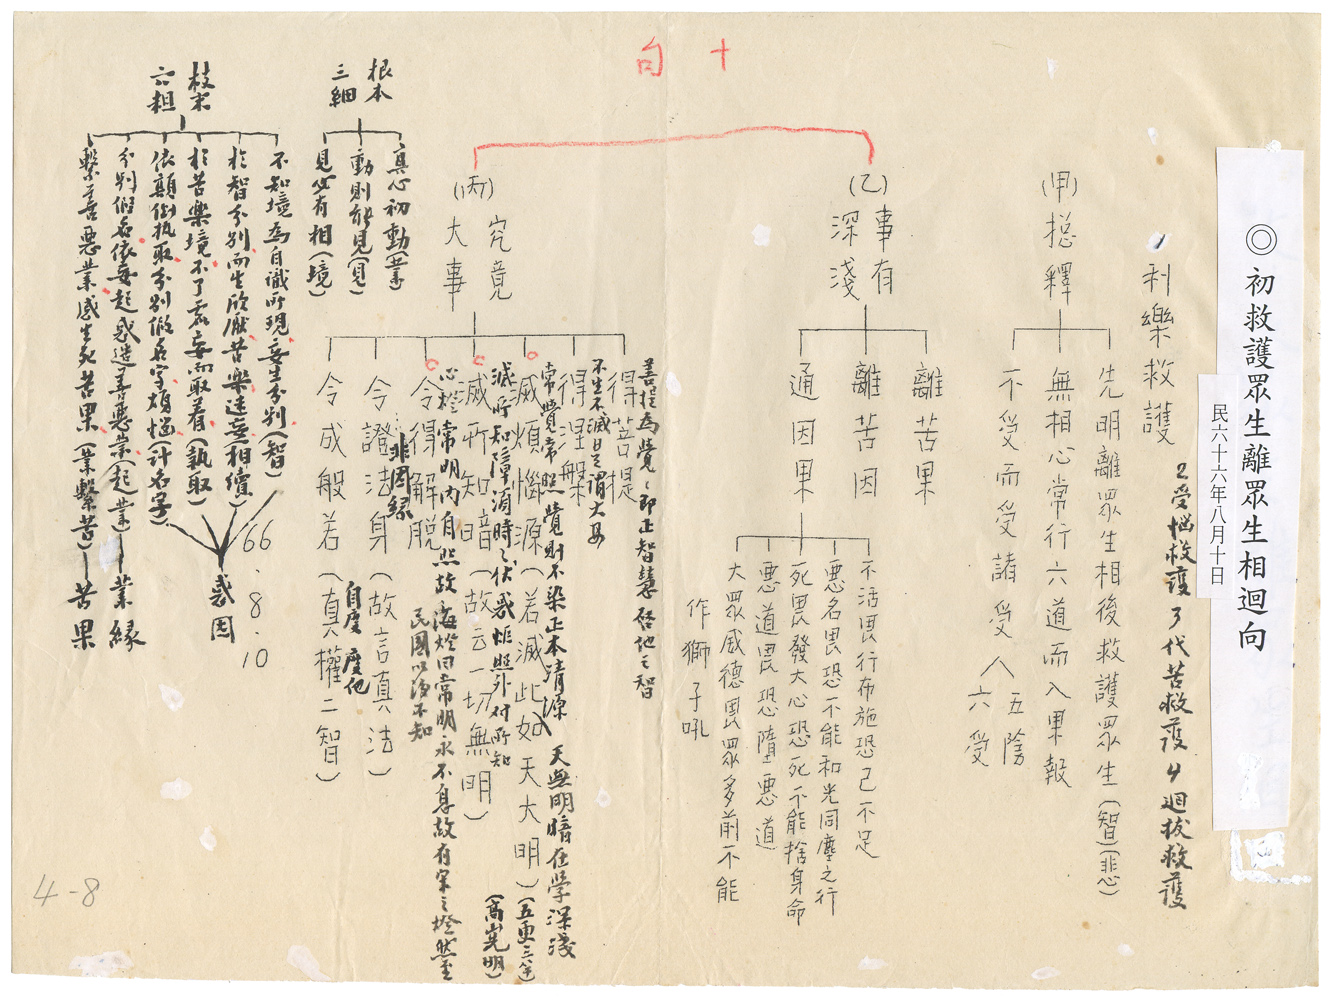 十句
◎初救護眾生離眾生相迴向
民六十六年八月十日
1利樂救護 2受惱救護 3代苦救護 4迴拔救護
(甲)總釋
先明離眾生相後救護眾生(智)(悲)
無相心常行六道而入果報
不受而受諸受
五陰
六受
(乙)事有深淺
離苦果
離苦因
通因果
不活畏行布施恐己不足
惡名畏恐不能和光同塵之行
死畏發大心恐死不能捨身命
惡道畏恐墮惡道
大眾威德畏眾多前不能
作獅子吼
(丙)究竟大事
得菩提
菩提為覺、即正智慧
得涅槃
不生不滅是謂大
滅煩惱源(若滅此如天大明)
常覺常照覺則不染正本清源
天無明暗在學深淺
滅所知暗(故云一切無明)
滅所知障
(高嵩明)
令得解脫
心於常明內自照故
海燈曰常明永不息故有
非因緣
民國以後不知
令證法身(故言真法)
自度度他
令成般若(真權二智)
根本三細
真心初動(業)
動則能見(見)
見必有相(境)
枝末六粗
不知境為自識所現妄生分別(智)
於智分別而生欣厭苦樂違妄(相續)
於苦樂境不了虛妄而取著(執取)
依顛倒執取分別假名字煩惱(計名字)
分別假名依妄起惑造善惡業(起業)—業緣
繫善惡業感生死苦果(業繫苦)—苦果
惑因
66.8.10
4-8